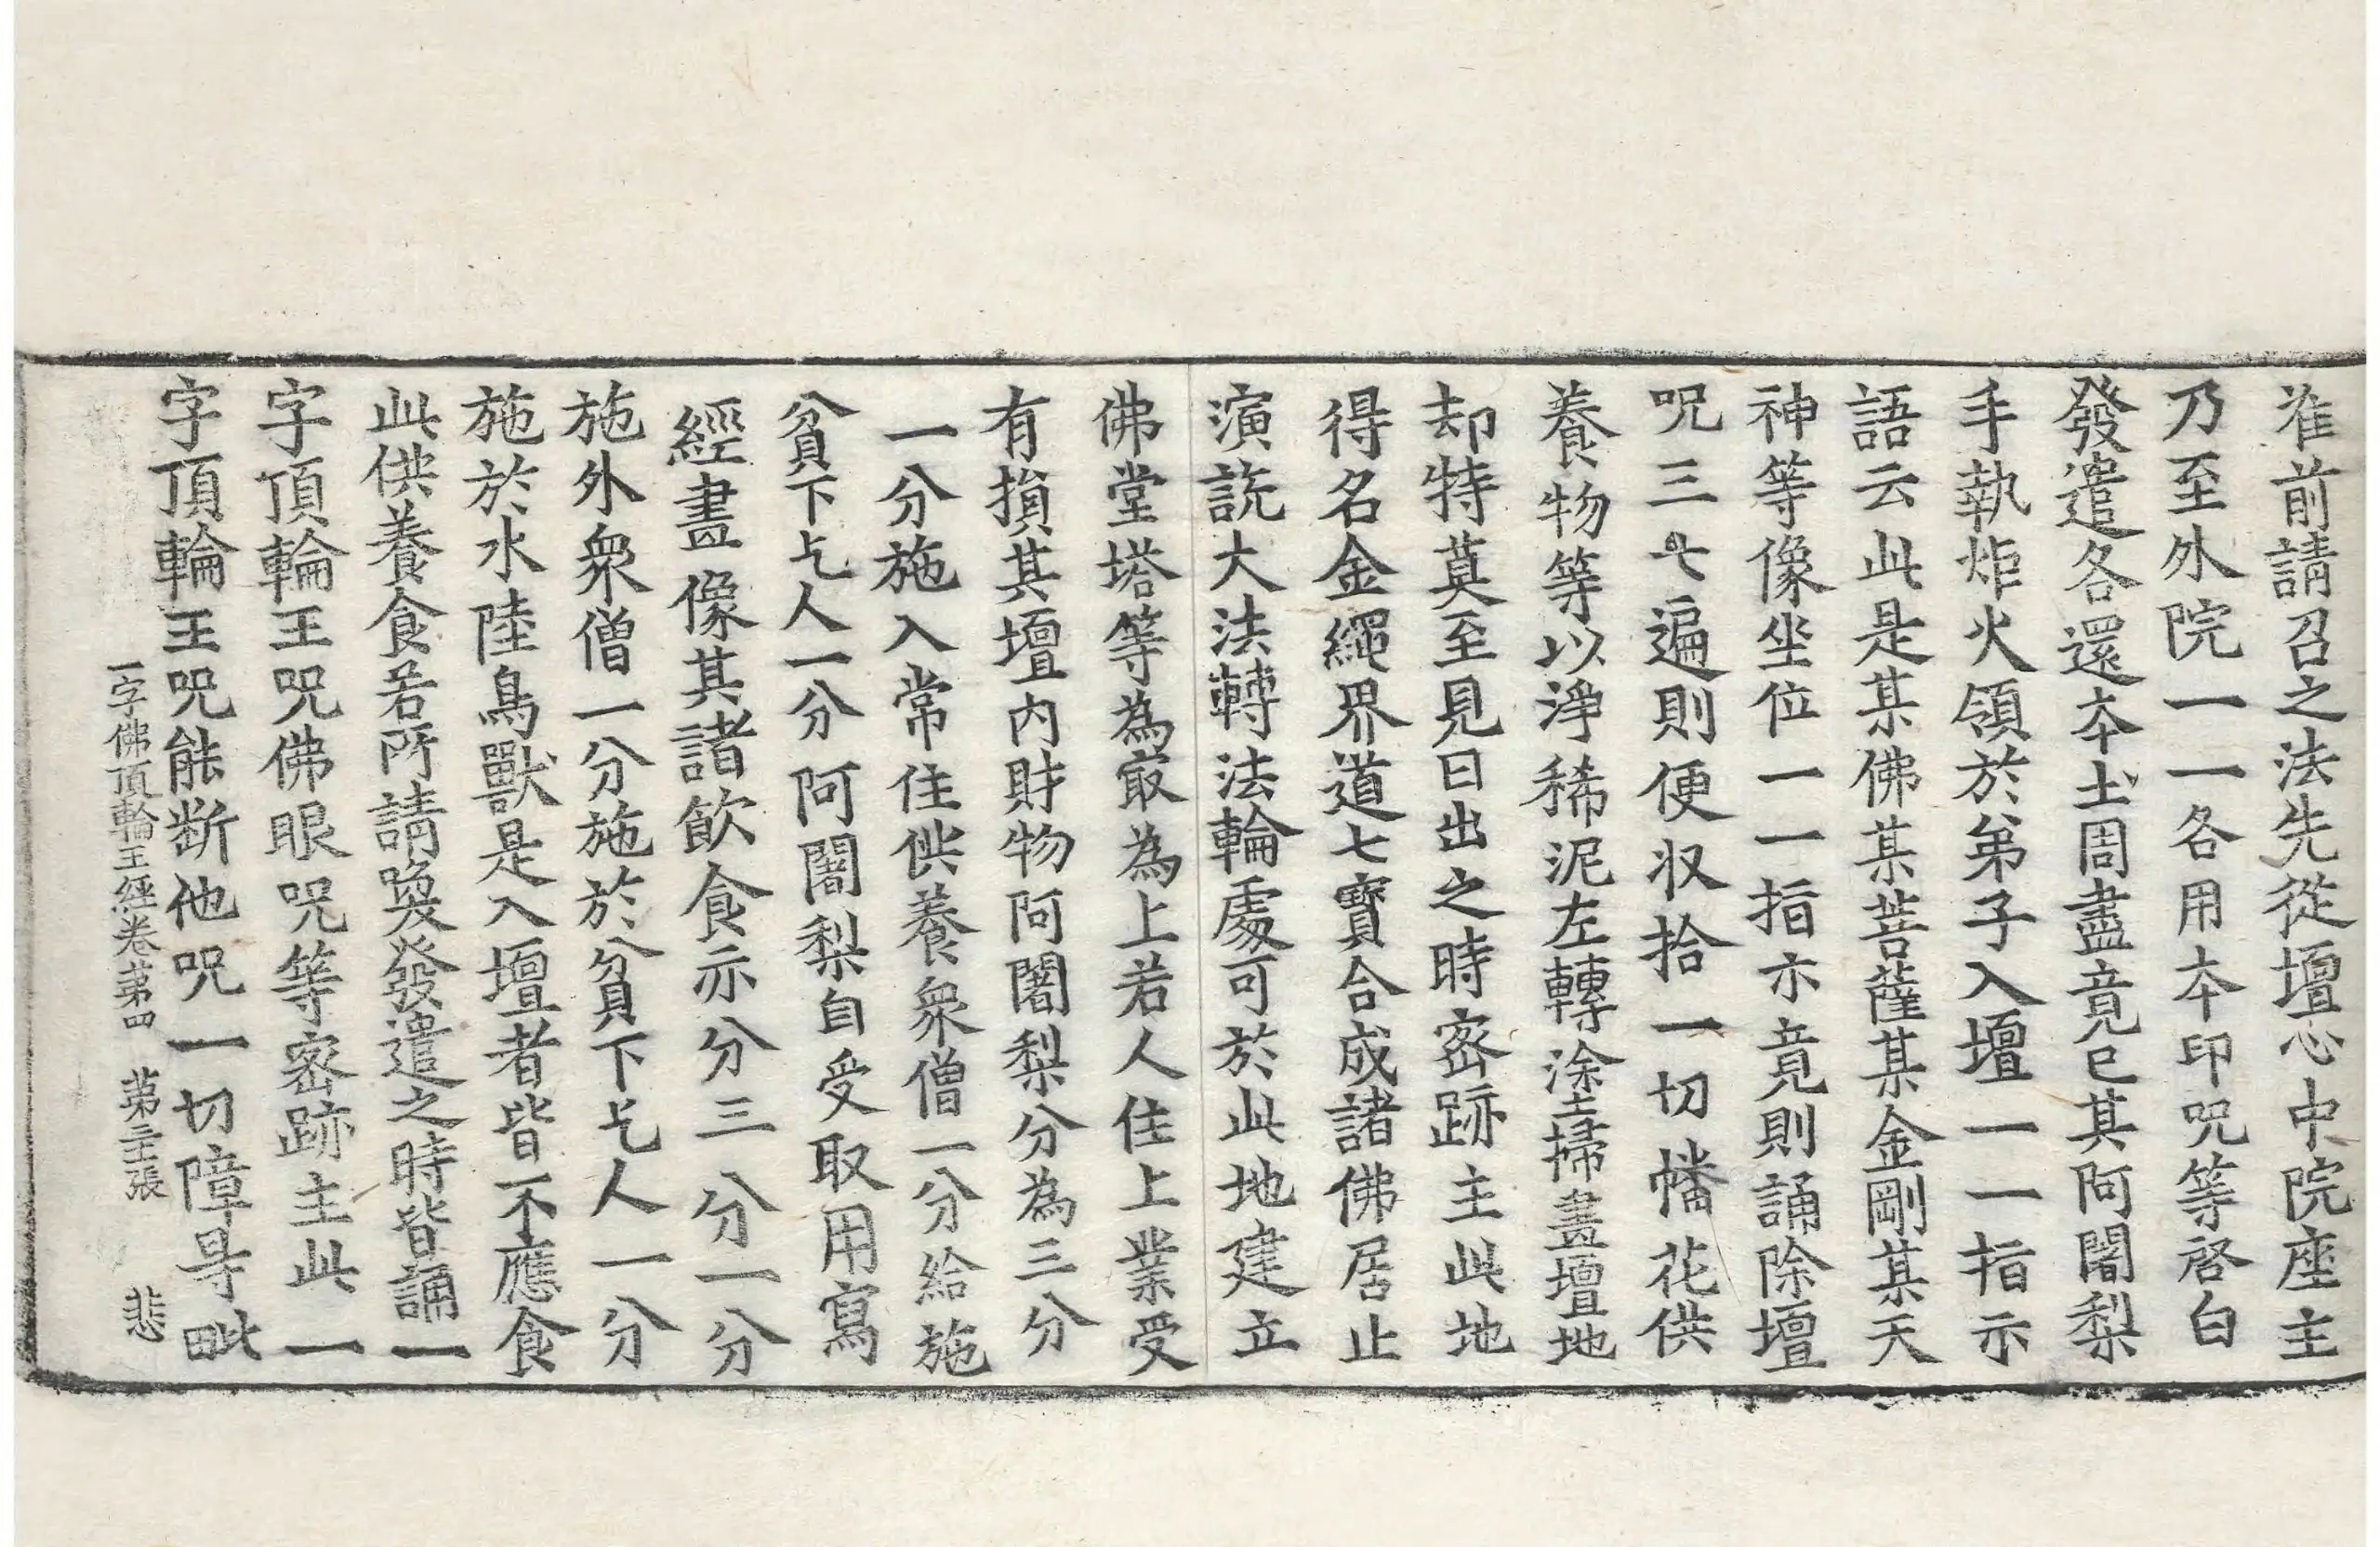 准前請召之法先從壇心中院座主
乃至外院一一各用本印呪等啓白
發遣各還本土周盡竟已其阿闍梨
手執炬火領於弟子入壇一一指示
語云此是某佛某菩薩某金剛某天
神等像坐位一一指示竟則誦除壇
呪三七遍則便收拾一切幡花供
養物等以淨稀泥左轉塗掃畫壇地
却特莫至見日出之時密跡主此地
得名金繩界道七寶合成諸佛居止
演說大法轉法輪處可於此地建立
佛堂塔等為㝡為上若人住上業受
有損其壇內財物阿闍梨分為三分
一分施入常住供養衆僧一分給施
貧下乞人一分阿闍梨自受取用寫
經畫像其諸飲食示分三分一分
施外衆僧一分施於貧下乞人一分
施於水陸鳥獸是入壇者皆不應食
此供養食若所請喚發遣之時皆誦一
字頂輪王呪佛眼呪等密跡主此一
字頂輪王呪能断他呪一切障㝵毗
一字佛頂輪王經卷第四　第二十張　悲